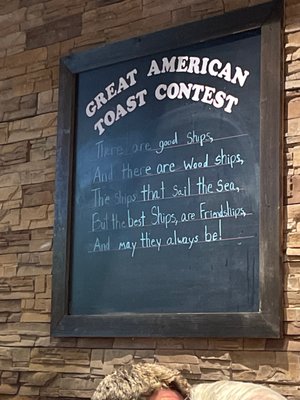 GREAT AMERICAN
TOAST CONTEST
There are good Ships,
And there are Wood ships,
The Ships that Sail the Sea,
But the best Ships, are Friendships,
And may they always be!